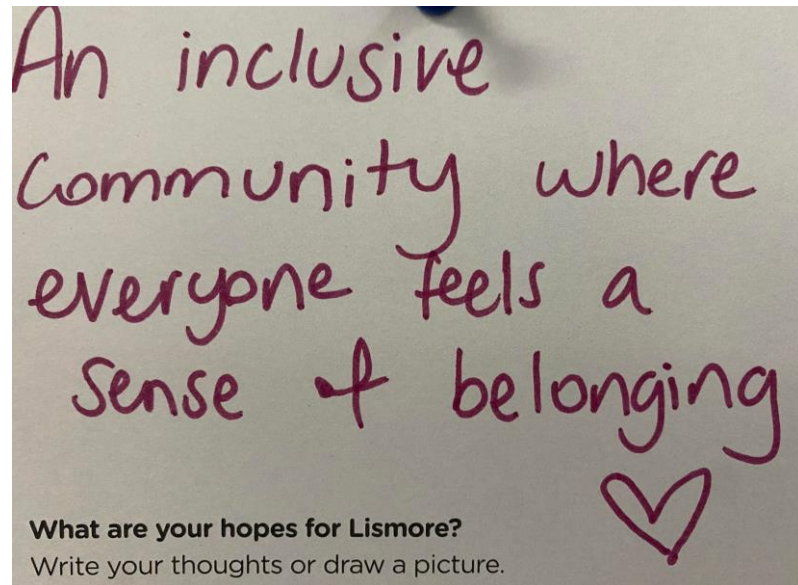 An inclusive
Community where
everyone feels a
sense of belonging
What are your hopes for Lismore?
Write your thoughts or draw a picture.